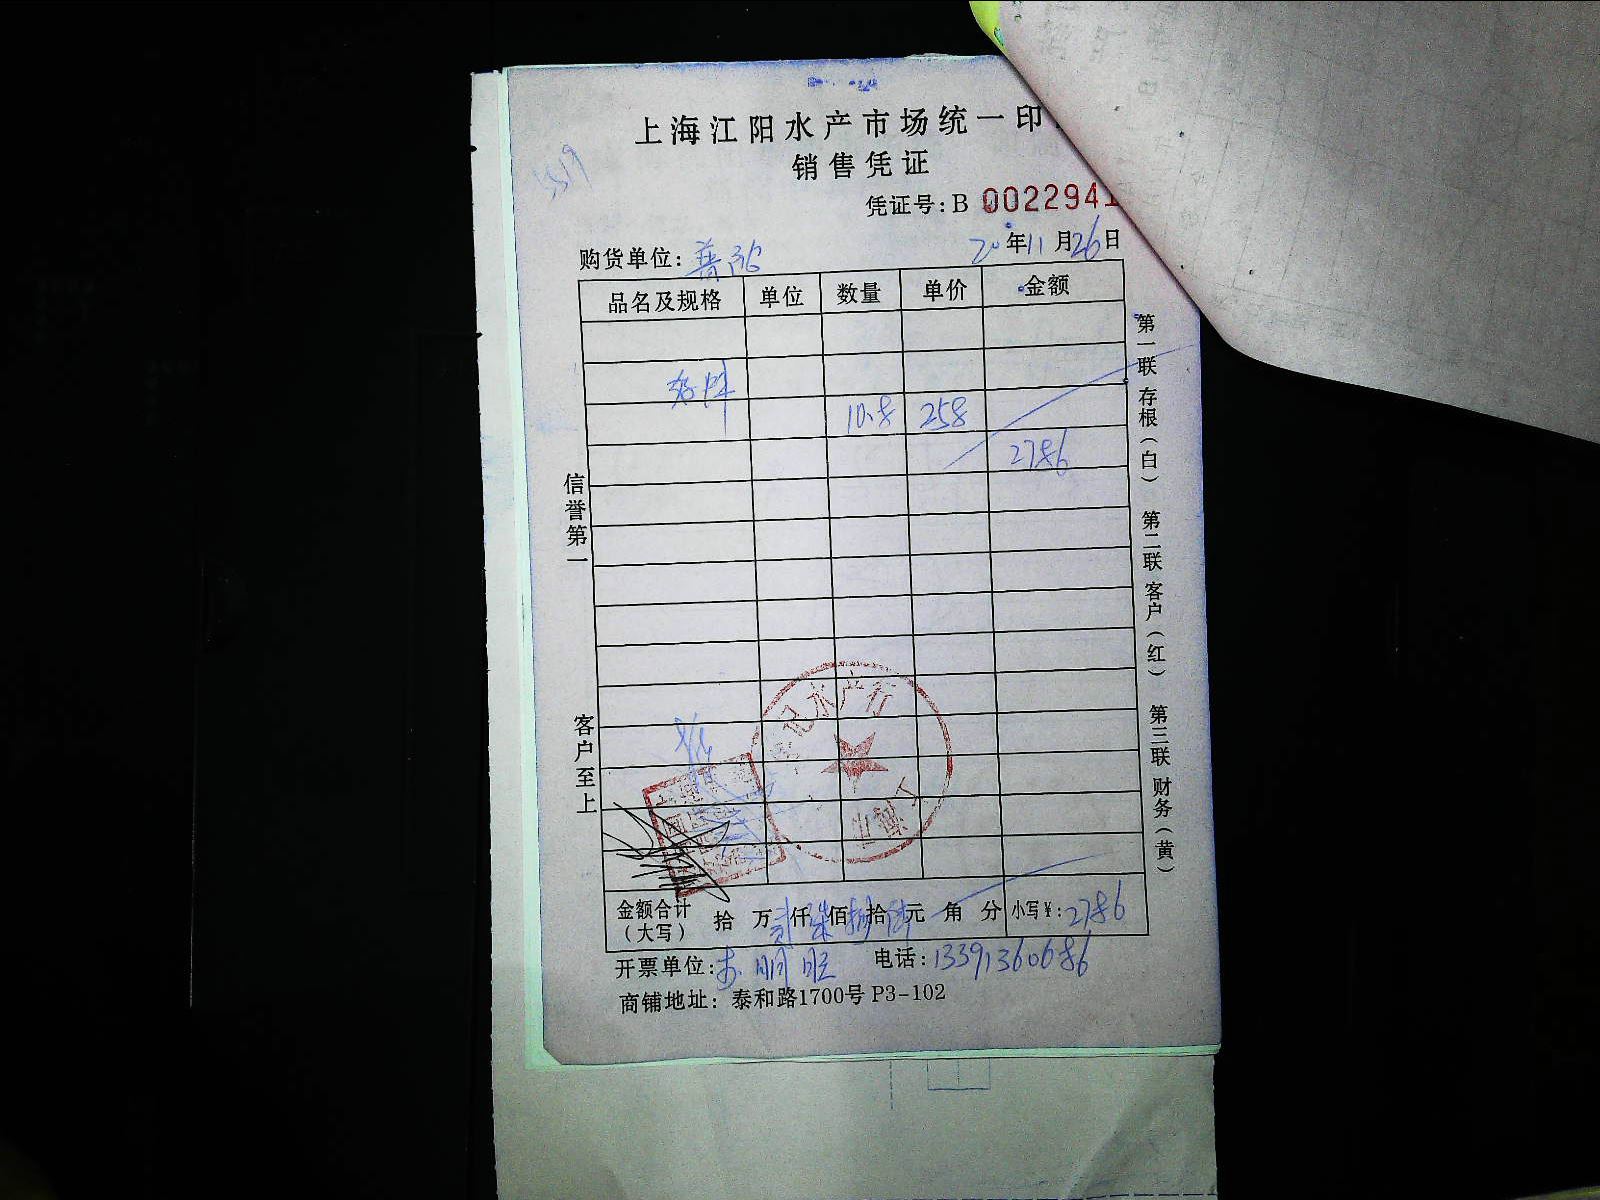 上海江阳水产市场统一印
销售凭证
5519
凭证号: B 0022941
购货单位: 20年11月26日
品名及规格 单位 数量 单价 金额
10.8 258
2786
信誉第一
客户至上
第一联 存根(白) 第二联 客户(红) 第三联 财务(黄)
记水产行
金额合计(大写) 拾 万贰仟柒佰捌拾陆元 角 分 小写¥: 2786
开票单位: 电话: 13391360686
商铺地址: 泰和路1700号 P3-102